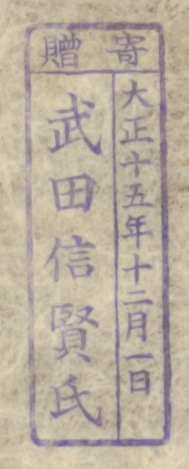 寄贈
大正十五年十二月一日
武田信賢氏